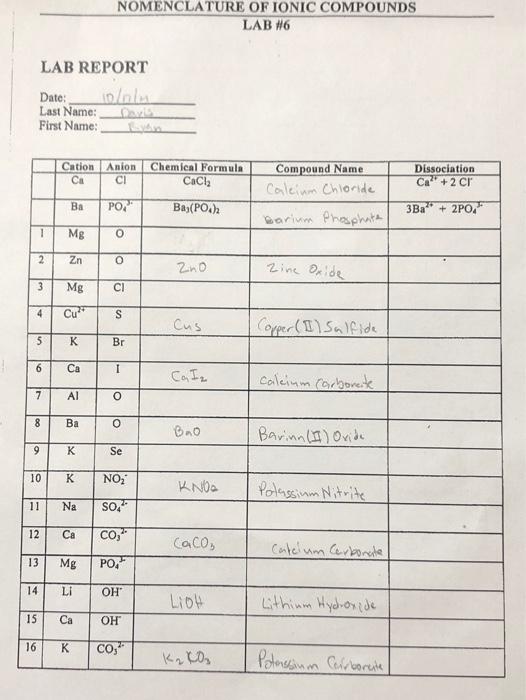 NOMENCLATURE OF IONIC COMPOUNDS
LAB #6
LAB REPORT
Date:
Last Name: Davis
First Name: Ryan
Cation Anion Chemical Formula Compound Name Dissociation
Ca Cl CaCl₂ Calcium Chloride Ca²⁺ + 2 Cl⁻
Ba PO₄³⁻ Ba₃(PO₄)₂ Barium Phosphate 3Ba²⁺ + 2PO₄³⁻
1 Mg O
2 Zn O ZnO Zinc Oxide
3 Mg Cl
4 Cu²⁺ S CuS Copper(II) Sulfide
5 K Br
6 Ca I CaI₂ Calcium Carbonate
7 Al O
8 Ba O BaO Barium(II) Oxide
9 K Se
10 K NO₂⁻ KNO₂ Potassium Nitrite
11 Na SO₄²⁻
12 Ca CO₃²⁻ CaCO₃ Calcium Carbonate
13 Mg PO₄³⁻
14 Li OH⁻ LiOH Lithium Hydroxide
15 Ca OH⁻
16 K CO₃²⁻ K₂CO₃ Potassium Carbonate